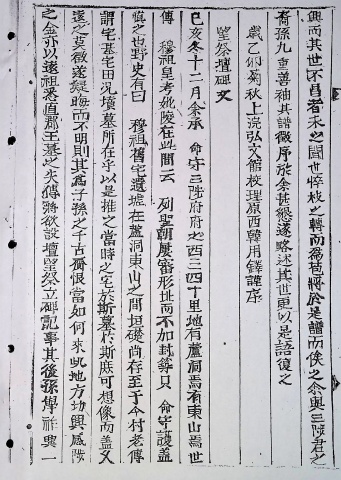 興而其世不昌者未之聞世悖枝之轉而爲苞將於是譜而俟之余與三陟君之
裔孫九重善袖其譜徵序於余甚懇遂略述其世更以是語復之
歲乙卯菊秋上浣弘文館校理原西韓用鐸謹序
望祭壇碑文
己亥冬十二月余承 命守三陟府府之西三四十里地有蘆洞焉有東山焉世
傳 穆祖皇考妣陵在此間云 列聖朝屢審形址而不加封築只 命守護蓋
愼之也野史有曰 穆祖舊宅遺墟在蘆洞東山之間垣礎尚存至于今村老傳
謂宅基宅田況墳墓所在乎以是推之當時之宅於斯墓於斯庶可想像而蓋又
遠之莫徵遂疑晦而不明則其爲子孫之千古齎恨當如何來此地方功興感陟
之金亦以遠祖悉直郡王墓之失傳將欲設壇望祭立碑記事其後孫學祚興一